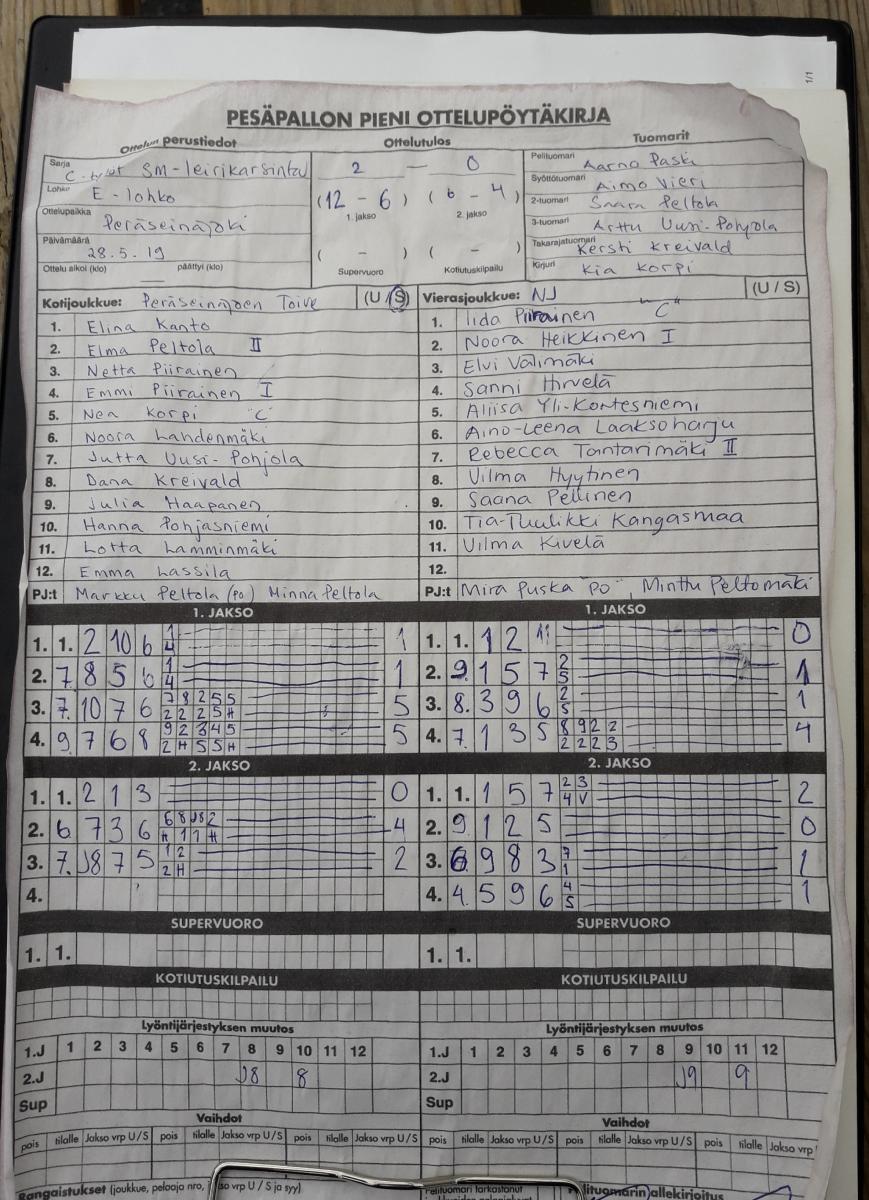 1/1
PESÄPALLON PIENI OTTELUPÖYTÄKIRJA
Ottelun perustiedot Ottelutulos Tuomarit
Sarja SM-leirikarsinta 2 — 0 Pelituomari Aarno Paski
Lohko E-lohko (12 - 6) (6 - 4) Syöttötuomari Aimo Vieri
1. jakso 2. jakso 2-tuomari Saara Peltola
Ottelupaikka Peräseinäjoki 3-tuomari Arttu Uusi-Pohjola
Päivämäärä 28.5.19 ( - ) ( - ) Takarajatuomari Kersti Kreivald
Ottelu alkoi (klo) päättyi (klo) Supervuoro Kotiutuskilpailu Kirjuri Kia Korpi
Kotijoukkue: Peräseinäjoen Toive (U / S) Vierasjoukkue: NJ (U / S)
1. Elina Kanto 1. Iida Piirainen "C"
2. Elma Peltola II 2. Noora Heikkinen I
3. Netta Piirainen 3. Elvi Välimäki
4. Emmi Piirainen I 4. Sanni Hirvelä
5. Nea Korpi "C" 5. Aliisa Yli-Kortesniemi
6. Noora Lahdenmäki 6. Aino-Leena Laaksoharju
7. Jutta Uusi-Pohjola 7. Rebecca Tantarimäki II
8. Dana Kreivald 8. Vilma Hyytinen
9. Julia Haapanen 9. Saana Pellinen
10. Hanna Pohjasniemi 10. Tia-Tuulikki Kangasmaa
11. Lotta Lamminmäki 11. Vilma Kivelä
12. Emma Lassila 12.
PJ:t Markku Peltola (po) Minna Peltola PJ:t Mira Puska "PO", Minttu Peltomäki
1. JAKSO 1. JAKSO
1. 1. 2 10 6 1 1. 1. 1 2 11 0
1
4
2. 7 8 5 6 1 2. 9. 1 5 7 1
1 2
4 5
3. 7. 10 7 6 5 3. 8. 3 9 6 1
7 8 2 5 5 2
2 2 2 5 H 5
4. 9 7 6 8 5 4. 7. 1 3 5 4
9 2 3 4 5 8 9 2 2
2 H 5 5 H 2 2 2 3
2. JAKSO 2. JAKSO
1. 1. 2 1 3 0 1. 1. 1 5 7 2
2 3
4 V
2. 6 7 3 6 4 2. 9. 1 2 5 0
6 8 J8 2
H 1 1 H
3. 7. J8 7 5 2 3. 6. 9 8 3 1
1 2 7
2 H 1
4. 4. 4. 5 9 6 1
4
5
SUPERVUORO SUPERVUORO
1. 1. 1. 1.
KOTIUTUSKILPAILU KOTIUTUSKILPAILU
Lyöntijärjestyksen muutos Lyöntijärjestyksen muutos
1.J 1 2 3 4 5 6 7 8 9 10 11 12 1.J 1 2 3 4 5 6 7 8 9 10 11 12
2.J J8 8 2.J J9 9
Sup Sup
Vaihdot Vaihdot
pois tilalle Jakso vrp U/S pois tilalle Jakso vrp U/S pois tilalle Jakso vrp U/S pois tilalle Jakso vrp U/S pois tilalle Jakso vrp U/S pois tilalle Jakso vrp
Rangaistukset (joukkue, pelaaja nro, so vrp U / S ja syy) Pelituomari tarkastanut lituomarin allekirjoitus